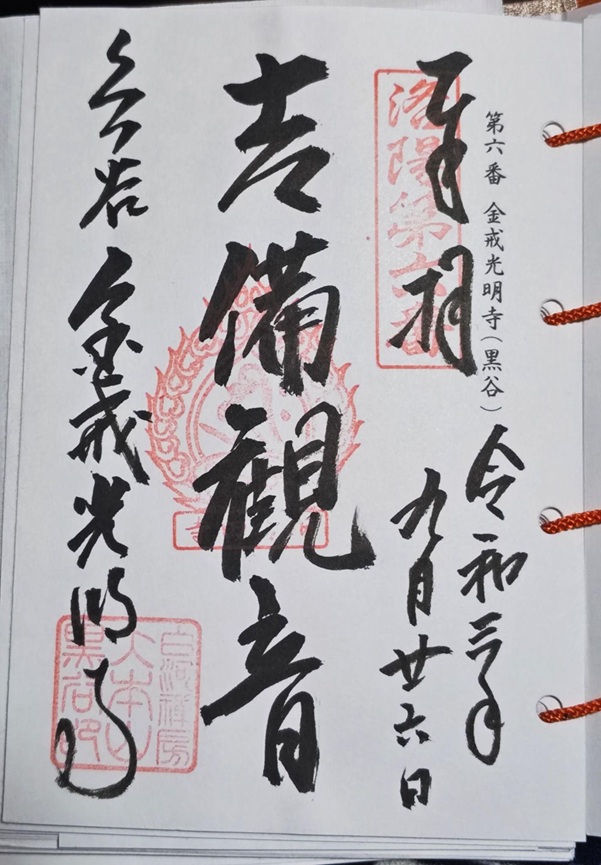 第六番 金戒光明寺(黒谷)
令和三年
九月廿六日
奉拝
洛陽第六番
吉備観音
くろ谷 金戒光明寺
白河禅房
大本山